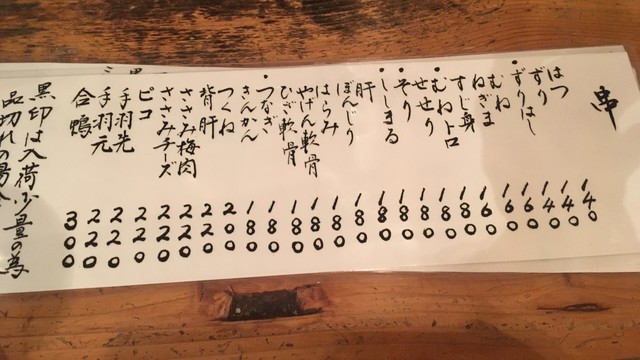 串
はつ 140
ずり 140
・ずりはし 140
むね 160
ねぎま 160
すじ身 160
・むねトロ 180
せせり 180
・そり 180
・ししまる 180
肝 180
ぼんじり 180
はらみ 180
やげん軟骨 180
ひざ軟骨 180
・つなぎ 180
きんかん 180
つくね 200
背肝 200
ささみ梅肉 220
ささみチーズ 220
ピコ 220
手羽先 220
手羽元 220
合鴨 300
黒印は入荷少量の為
品切れの場合